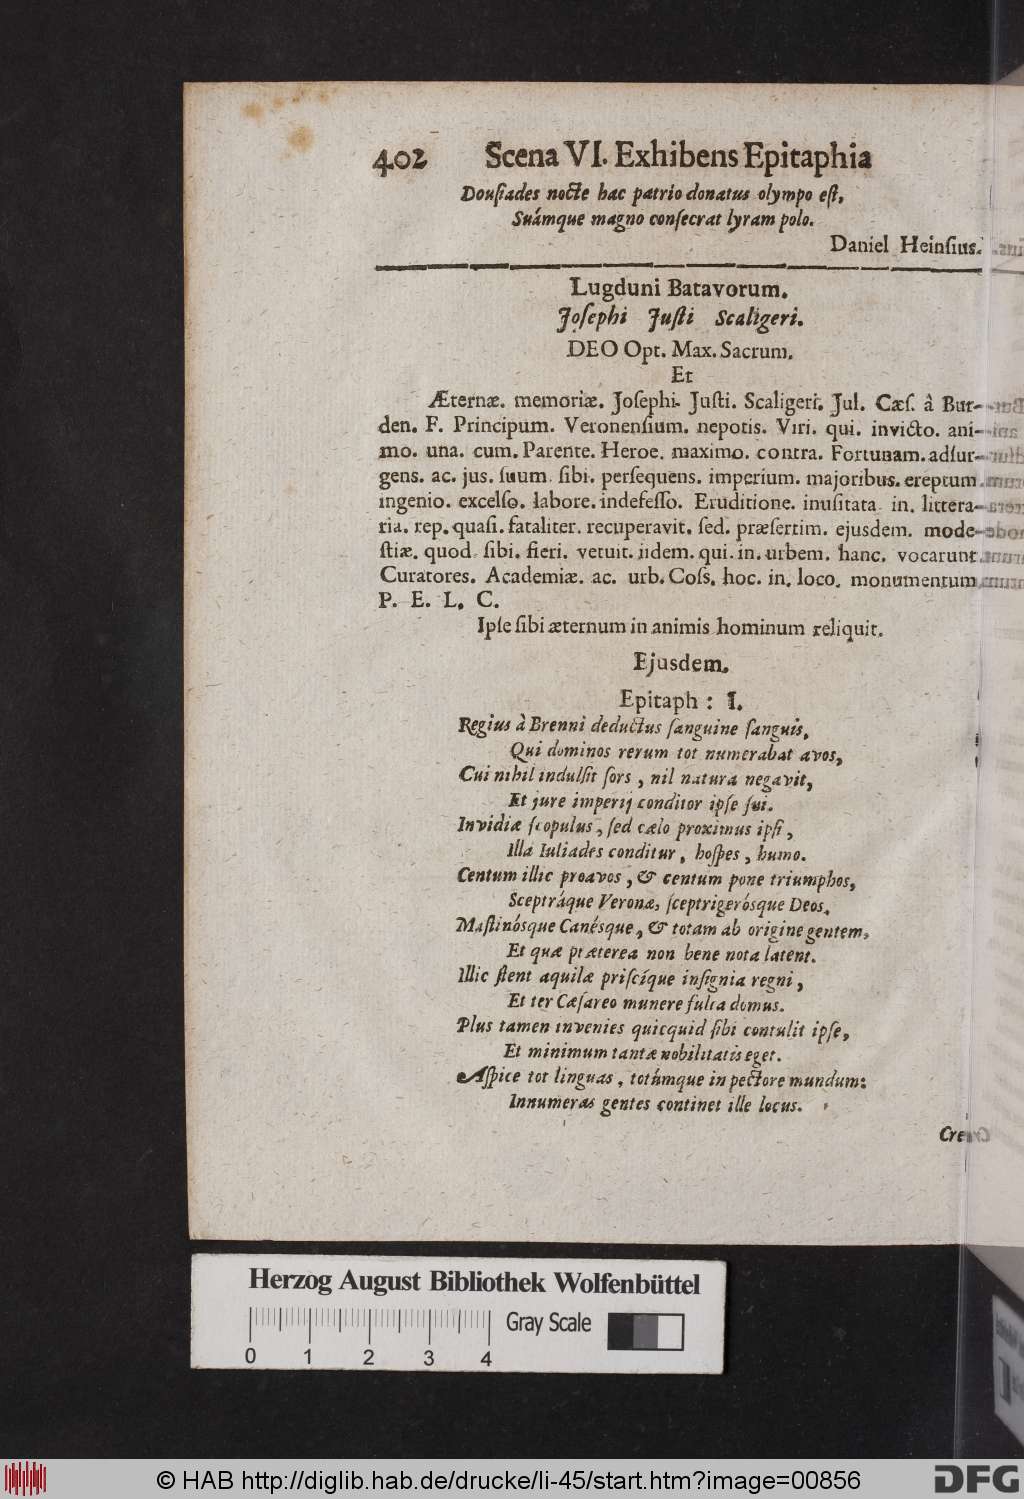 402 Scena VI. Exhibens Epitaphia
Dousiades nocte hac patrio donatus olympo est,
Suámque magno consecrat lyram polo.
Daniel Heinsius.
Lugduni Batavorum.
Josephi Justi Scaligeri.
DEO Opt. Max. Sacrum.
Et
Æternæ. memoriæ. Josephi. Justi. Scaligeri. Jul. Cæs. â Bur-
den. F. Principum. Veronensium. nepotis. Viri. qui. invicto. ani-
mo. una. cum. Parente. Heroe. maximo. contra. Fortunam. adsur-
gens. ac. jus. suum. sibi. persequens. imperium. majoribus. ereptum.
ingenio. excelso. labore. indefesso. Eruditione. inusitata. in. littera-
ria. rep. quasi. fataliter. recuperavit. sed. præsertim. ejusdem. mode-
stiæ. quod. sibi. fieri. vetuit. iidem. qui. in. urbem. hanc. vocarunt.
Curatores. Academiæ. ac. urb. Coss. hoc. in. loco. monumentum
P. E. L. C.
Ipse sibi æternum in animis hominum reliquit.
Ejusdem.
Epitaph : I.
Regius à Brenni deductus sanguine sanguis,
Qui dominos rerum tot numerabat avos,
Cui nihil indulsit sors, nil natura negavit,
Et jure imperij conditor ipse sui.
Invidiæ scopulus, sed cælo proximus ipsi,
Illa Iuliades conditur, hospes, humo.
Centum illic proavos, & centum pone triumphos,
Sceptráque Veronæ, sceptrigerósque Deos.
Mastinósque Canésque, & totam ab origine gentem,
Et quæ præterea non bene nota latent.
Illic stent aquilæ priscíque insignia regni,
Et ter Cæsareo munere fulta domus.
Plus tamen invenies quicquid sibi contulit ipse,
Et minimum tantæ nobilitatis eget.
Aspice tot linguas, totúmque in pectore mundum:
Innumeras gentes continet ille locus.
Cre
Herzog August Bibliothek Wolfenbüttel
Gray Scale
0 1 2 3 4
© HAB http://diglib.hab.de/drucke/li-45/start.htm?image=00856
DFG